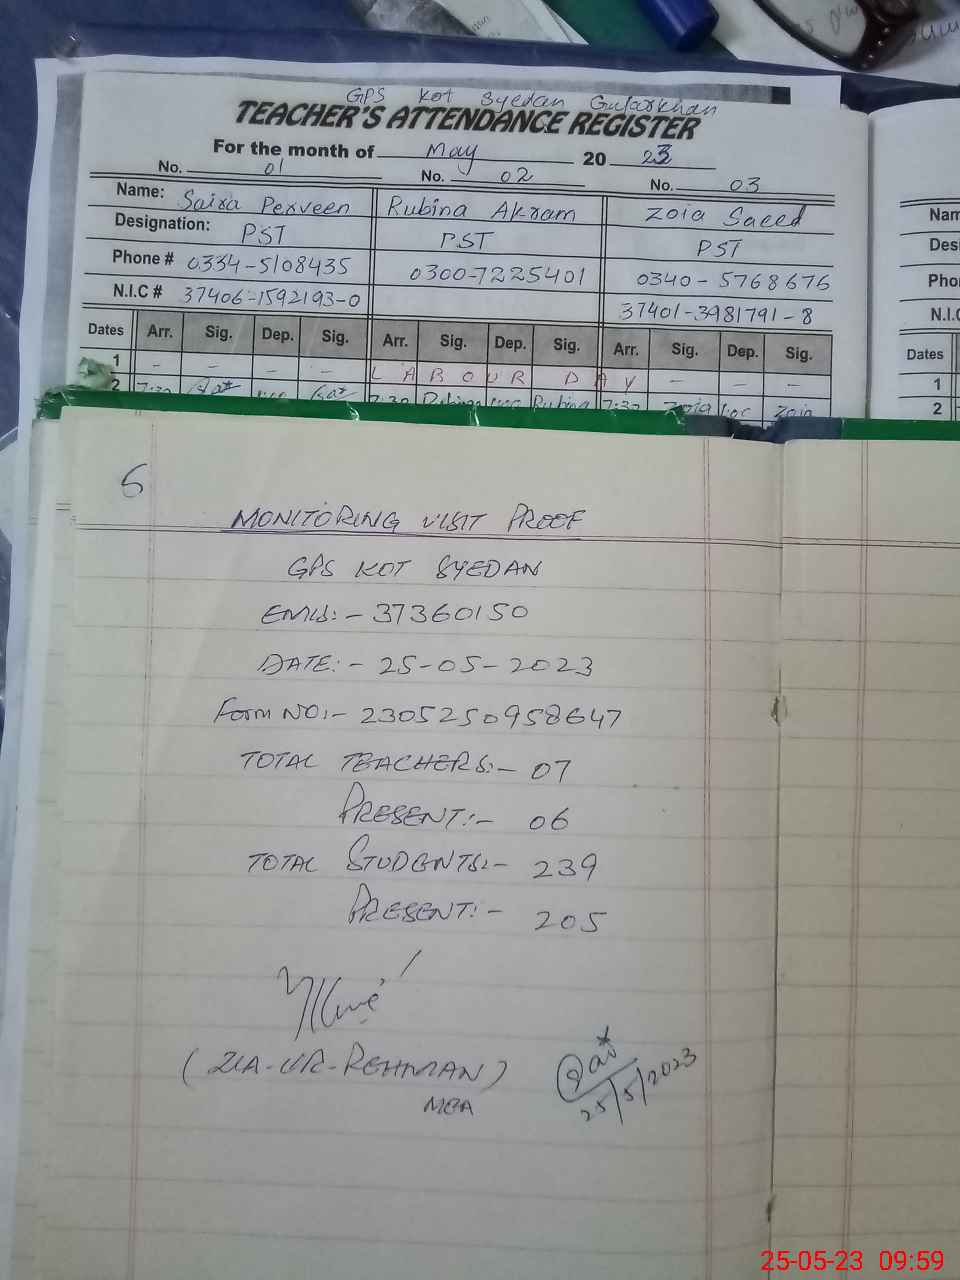 GPS Kot Syedan Gujarkhan
TEACHER'S ATTENDANCE REGISTER
For the month of May 20 23
No. 01 No. 02 No. 03
Name: Saira Perveen Rubina Akram Zoia Saeed
Designation: PST PST PST
Phone # 0334-5108435 0300-7225401 0340-5768676
N.I.C # 37406-1592193-0 37401-3981791-8
Dates Arr. Sig. Dep. Sig. Arr. Sig. Dep. Sig. Arr. Sig. Dep. Sig.
1 - - - - LABOUR DAY - - -
2 7:30 7:30 Rubina Rubina 7:30 Zoia Zoia
Nam
Desi
Pho
N.I.C
Dates Arr.
1
2
6
MONITORING VISIT PROOF
GPS KOT SYEDAN
EMIS:- 37360150
DATE:- 25-05-2023
Form NO:- 2305250958647
TOTAL TEACHERS:- 07
PRESENT:- 06
TOTAL STUDENTS:- 239
PRESENT:- 205
(ZIA-UR-REHMAN)
MEA
25/5/2023
25-05-23 09:59